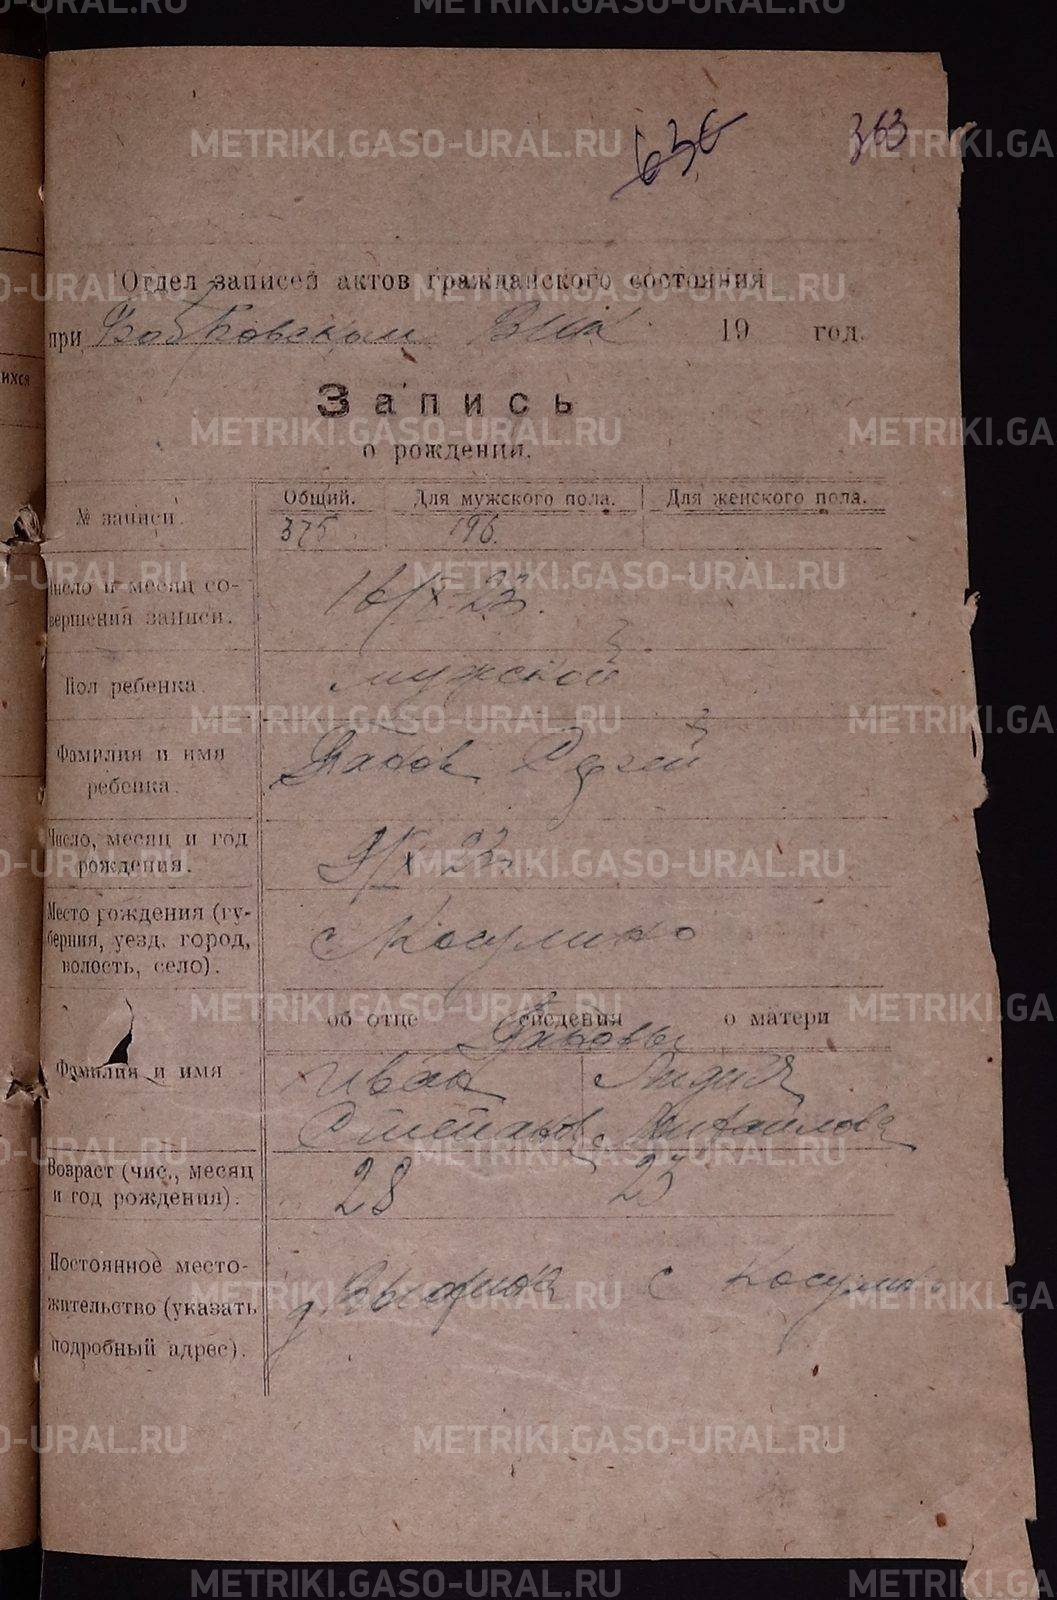 636
363
Отдел записей актов гражданского состояния
при Бобровском ВИК 19 год.
Запись
о рождении.
№ записи.
Общий. Для мужского пола. Для женского пола.
375 196
Число и месяц со-
вершения записи.
16/X 23.
Пол ребенка
мужской
Фамилия и имя
ребенка.
Сергей
Число, месяц и год
рождения.
9/X 23.
Место рождения (гу-
берния, уезд, город,
волость, село).
с Косулино
об отце сведения о матери
Фамилия и имя
Иван Лидия
Степанов Михайлова
Возраст (чис., месяц
и год рождения).
28 23
Постоянное место-
жительство (указать
подробный адрес).
с Косулино
ихся
METRIKI.GASO-URAL.RU